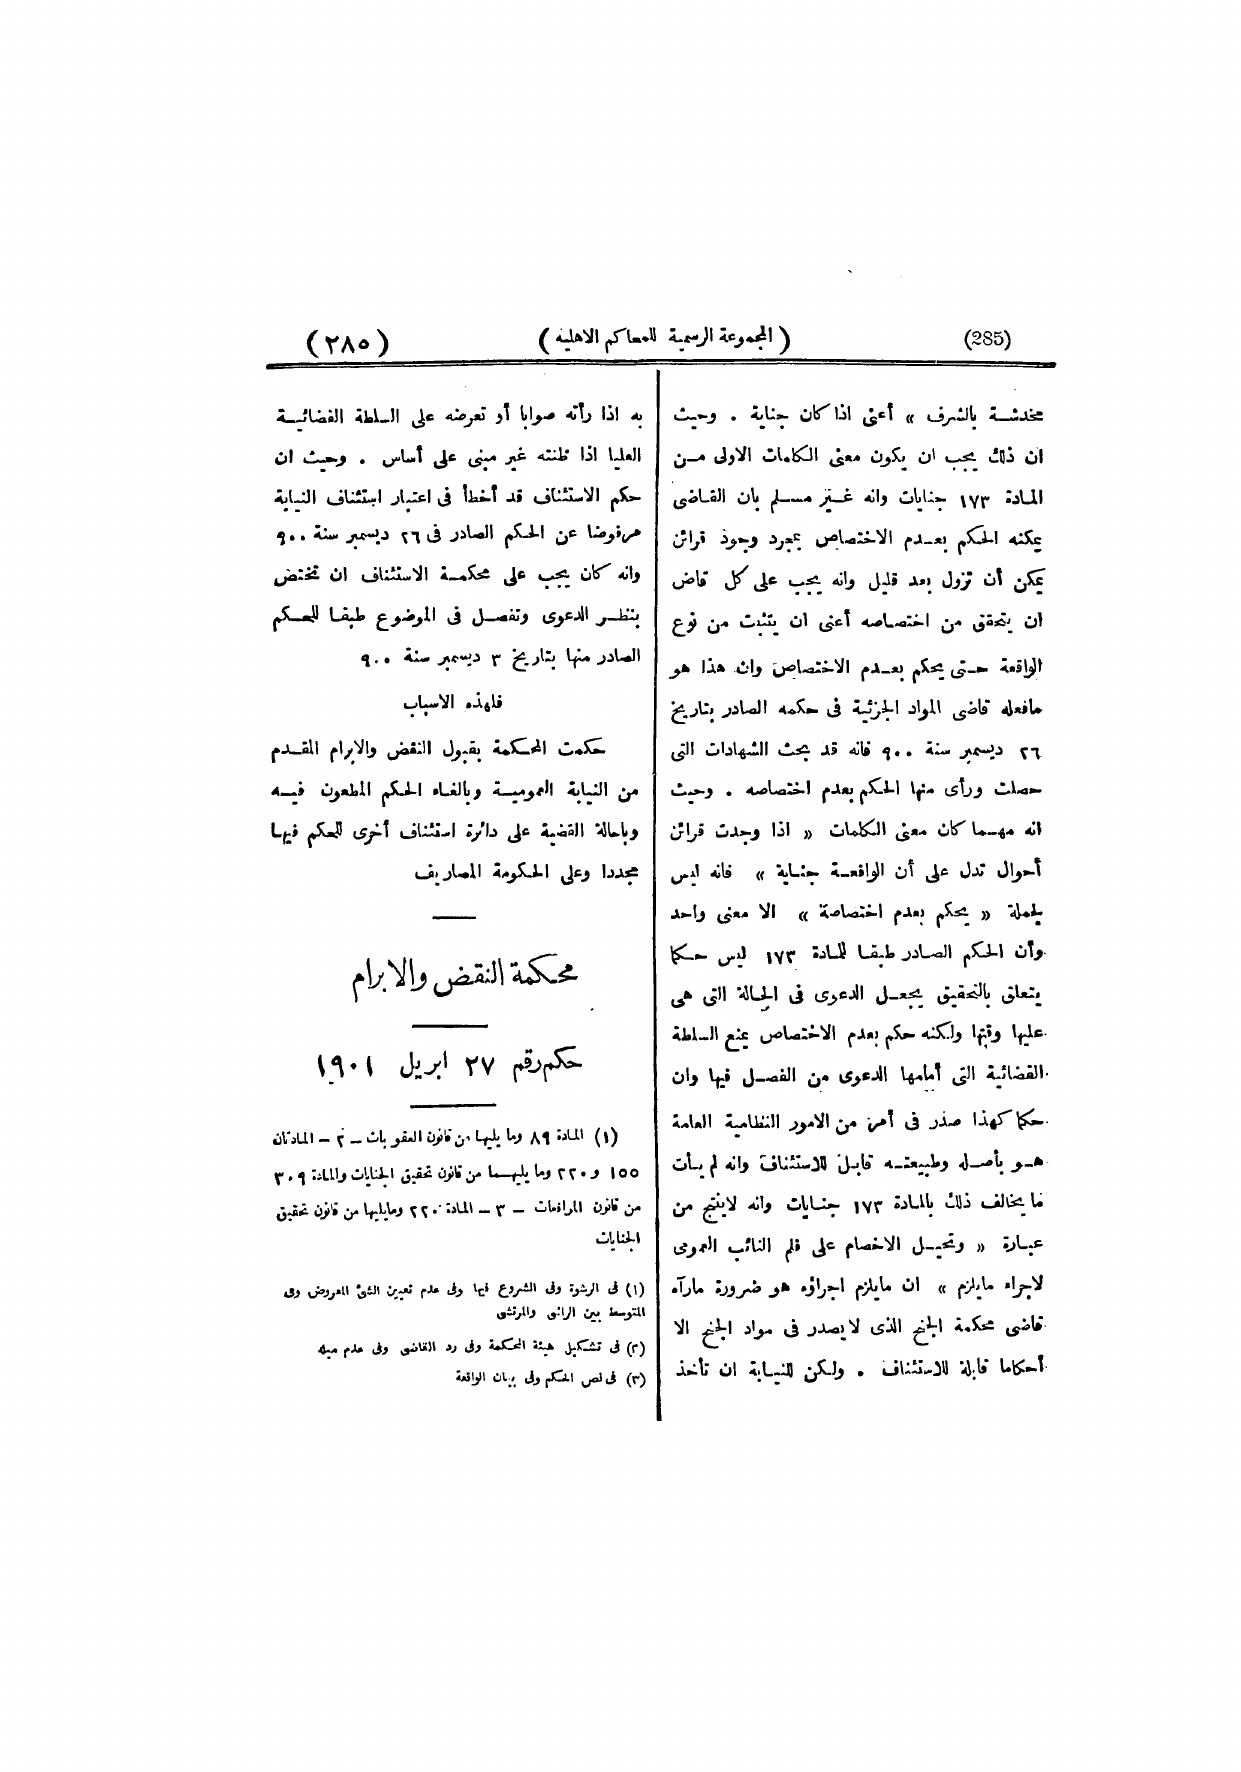 (285) ( المجموعة الرسمية للمحاكم الاهلية ) (٢٨٥)
مخدشة بالشرف » أعنى اذا كان جناية . وحيث
ان ذلك يجب ان يكون معنى الكلمات الاولى من
المادة ١٧٣ جنايات وانه غير مسلم بان القاضى
يمكنه الحكم بعدم الاختصاص بمجرد وجود قرائن
يمكن أن تزول بعد قليل وانه يجب على كل قاض
ان يتحقق من اختصاصه أعنى ان يتثبت من نوع
الواقعة حتى يحكم بعدم الاختصاص وان هذا هو
مافعله قاضى المواد الجزئية فى حكمه الصادر بتاريخ
٢٦ ديسمبر سنة ٩٠٠ فانه قد بحث الشهادات التى
حصلت ورأى منها الحكم بعدم اختصاصه . وحيث
انه مهما كان معنى الكلمات « اذا وجدت قرائن
أحوال تدل على أن الواقعة جناية » فانه ليس
لجملة « يحكم بعدم اختصاصة » الا معنى واحد
وأن الحكم الصادر طبقا للمادة ١٧٣ ليس حكما
يتعلق بالتحقيق يجعل الدعوى فى الحالة التى هى
عليها وقتها ولكنه حكم بعدم الاختصاص يمنع السلطة
القضائية التى أمامها الدعوى من الفصل فيها وان
حكما كهذا صدر فى أمر من الامور النظامية العامة
هو بأصله وطبيعته قابل للاستئناف وانه لم يأت
ما يخالف ذلك بالمادة ١٧٣ جنايات وانه لاينتج من
عبارة « وتحيل الاخصام على قلم النائب العمومى
لاجراء مايلزم » ان مايلزم اجراؤه هو ضرورة مارآه
قاضى محكمة الجنح الذى لا يصدر فى مواد الجنح الا
أحكاما قابلة للاستئناف . ولكن للنيابة ان تأخذ
به اذا رأته صوابا أو تعرضه على السلطة القضائية
العليا اذا ظنته غير مبنى على أساس . وحيث ان
حكم الاستئناف قد أخطأ فى اعتبار استئناف النيابة
مرفوضا عن الحكم الصادر فى ٢٦ ديسمبر سنة ٩٠٠
وانه كان يجب على محكمة الاستئناف ان تختص
بنظر الدعوى وتفصل فى الموضوع طبقا للحكم
الصادر منها بتاريخ ٣ ديسمبر سنة ٩٠٠
فلهذه الاسباب
حكمت المحكمة بقبول النقض والابرام المقدم
من النيابة العمومية وبالغاء الحكم المطعون فيه
وباحالة القضية على دائرة استئناف أخرى للحكم فيها
مجددا وعلى الحكومة المصاريف
محكمة النقض والابرام
حكم رقم ٢٧ ابريل ١٩٠١
(١) المادة ٨٩ وما يليها من قانون العقوبات ــ ٢ ــ المادتان
١٥٥ و٢٢٠ وما يليهما من قانون تحقيق الجنايات والمادة ٣٠٩
من قانون المرافعات ــ ٣ ــ المادة ٢٢٠ ومايليها من قانون تحقيق
الجنايات
(١) فى الرشوة وفى الشروع فيها وفى عدم تعيين الشئ المعروض وفى
المتوسط بين الراشى والمرتشى
(٢) فى تشكيل هيئة المحكمة وفى رد القاضى وفى عدم ميله
(٣) فى نص الحكم وفى بيان الواقعة